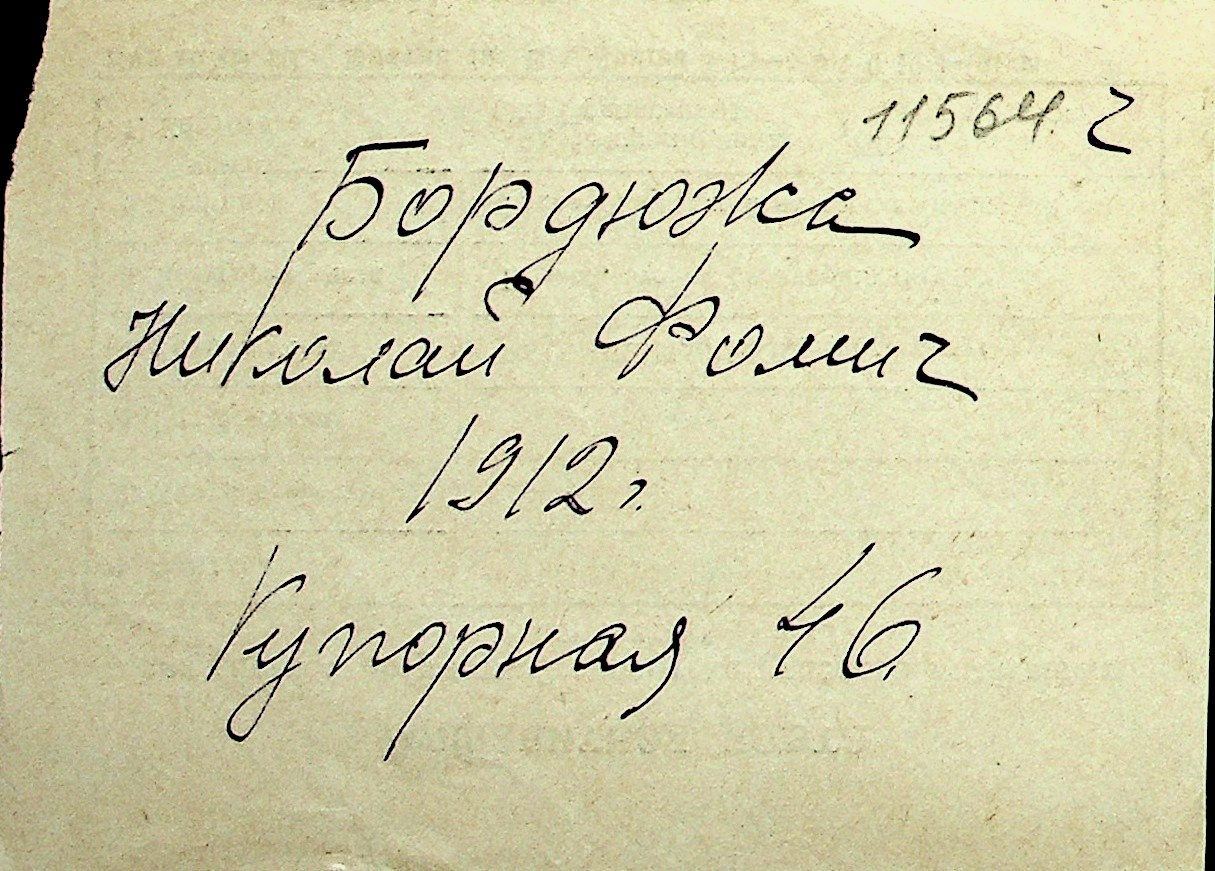 11564 ч
Бордюжа
Николай Фомич
1912 г.
Купорная 46